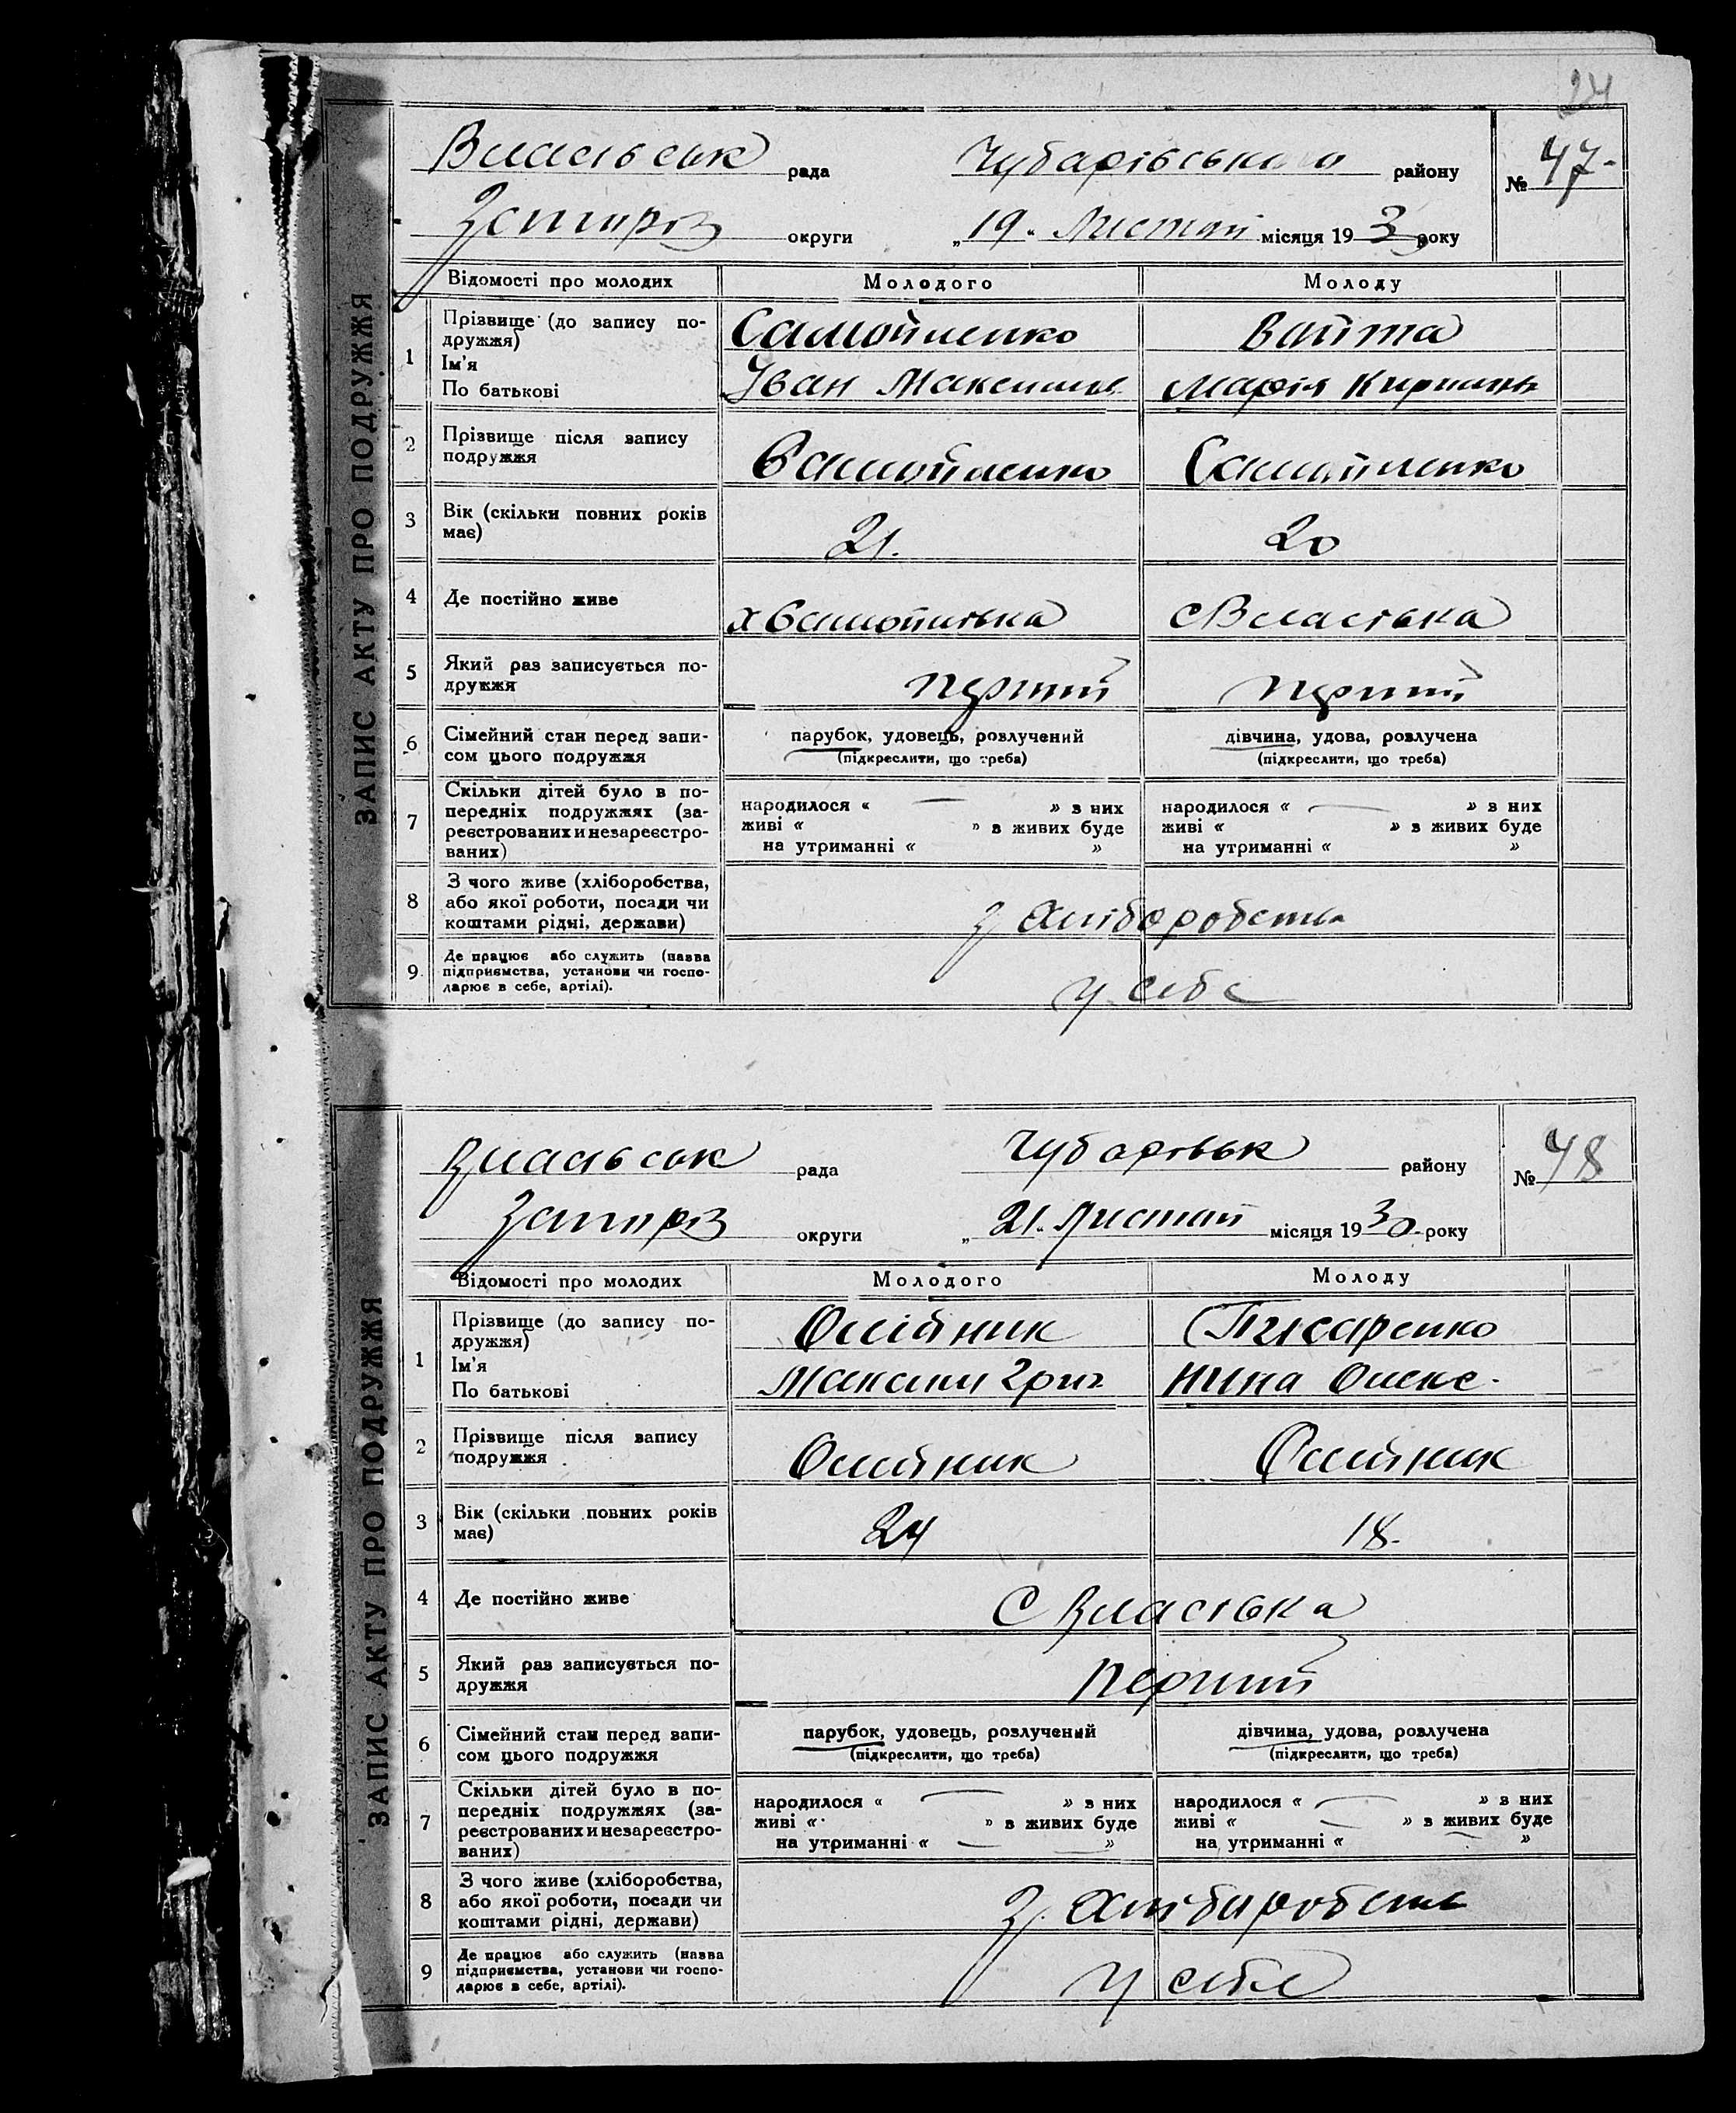 24
ЗАПИС АКТУ ПРО ПОДРУЖЖЯ
Власівськ рада Чубарівського району № 47-
Запоріз округи „19“ Листопад місяця 193 року
Відомості про молодих Молодого Молоду
1 Прізвище (до запису подружжя) Самойленко Вайта
Ім'я
По батькові Іван Максимов. Марія Кирилівн
2 Прізвище після запису подружжя Самойленко Самойленко
3 Вік (скільки повних років має) 21. 20
4 Де постійно живе х Самойлівка с Власівка
5 Який раз записується подружжя перший перший
6 Сімейний стан перед записом цього подружжя парубок, удовець, розлучений дівчина, удова, розлучена
(підкреслити, що треба) (підкреслити, що треба)
7 Скільки дітей було в попередніх подружжях (зареєстрованих и незареєстрованих) народилося « — » з них народилося « — » з них
живі « » з живих буде живі « » з живих буде
на утриманні « » на утриманні « »
8 З чого живе (хліборобства, або якої роботи, посади чи коштами рідні, держави) з хліборобства
9. Де працює або служить (назва підприємства, установи чи господарює в себе, артілі). у себе
ЗАПИС АКТУ ПРО ПОДРУЖЖЯ
Власівськ рада Чубарівськ району № 48
Запоріз округи „21“ Листопад місяця 1930 року
Відомості про молодих Молодого Молоду
1 Прізвище (до запису подружжя) Олійник Писаренко
Ім'я
По батькові Максим Григ Нина Олекс.
2 Прізвище після запису подружжя Олійник Олійник
3 Вік (скільки повних років має) 24 18.
4 Де постійно живе С Власівка
5 Який раз записується подружжя перший
6 Сімейний стан перед записом цього подружжя парубок, удовець, розлучений дівчина, удова, розлучена
(підкреслити, що треба) (підкреслити, що треба)
7 Скільки дітей було в попередніх подружжях (зареєстрованих и незареєстрованих) народилося « — » з них народилося « — » з них
живі « » з живих буде живі « — » з живих буде
на утриманні « — » на утриманні « — »
8 З чого живе (хліборобства, або якої роботи, посади чи коштами рідні, держави) З хліборобств
9 Де працює або служить (назва підприємства, установи чи господарює в себе, артілі). у себе